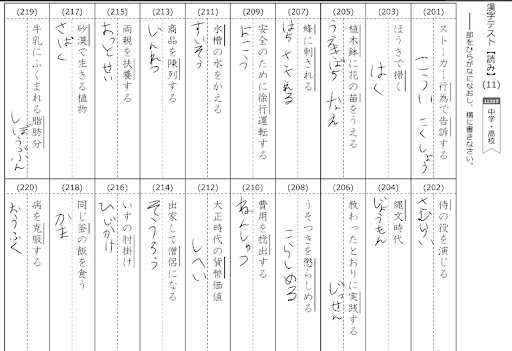 漢字テスト【読み】(11)
中学・高校
部をひらがなになおし、横に書きなさい。
(201)
ストーカー行為で告訴する
こうい こくしょう
(203)
ほうきで掃く
はく
(205)
植木鉢に花の苗をうえる
うえきばち なえ
(207)
蜂に刺される
はち
(209)
安全のために徐行運転する
(211)
水槽の水をかえる
すいそう
(213)
商品を陳列する
じんれつ
(215)
両親を扶養する
おっとせい
(217)
砂漠で生きる植物
さばく
(219)
牛乳にふくまれる脂肪分
しぼうぶん
(202)
侍の役を演じる
さむらい
(204)
縄文時代
じょうもん
(206)
教わったとおりに実践する
じっせん
(208)
うそつきを懲らしめる
こらしめる
(210)
費用を捻出する
ねんしゅつ
(212)
大正時代の貨幣価値
しへい
(214)
出家して僧侶になる
そうろう
(216)
いすの肘掛け
ひじかけ
(218)
同じ釜の飯を食う
かま
(220)
病を克服する
おうふく